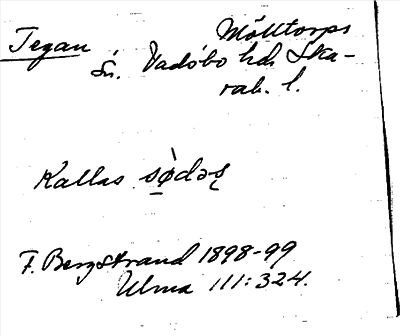 Tegan
Mölltorps
Sn. Vadsbo hd. Ska-
rab. l.
Kallas sø̀dəş
F. Bergstrand 1898-99
Ulma 111:324.